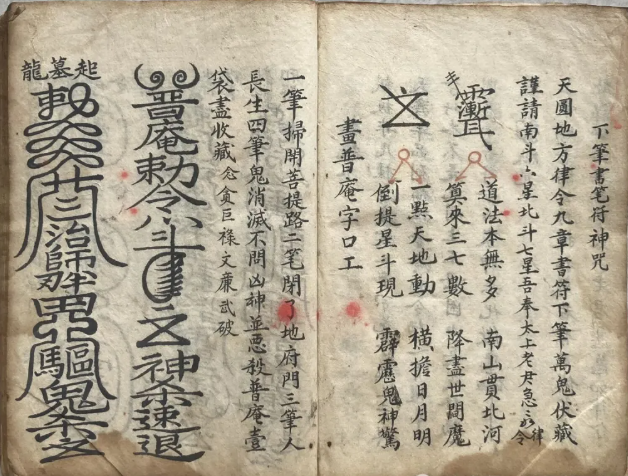 下筆書笔符神咒
天圓地方律令九章書符下筆萬鬼伏藏
謹請南斗六星北斗七星吾奉太上老君急急律令
道法本無多 南山貫北河
算來三七數 降盡世間魔
一點天地動 橫擔日月明
倒提星斗現 霹靂鬼神驚
畫普庵字口工
一筆掃開菩提路二笔閉了地府門三筆人
長生四筆鬼消滅不問凶神並惡殺普庵壹
袋盡收藏 念貪巨祿文廉武破
普庵勅令八斗
神煞速退
起墓龍
勅
治
驅鬼煞